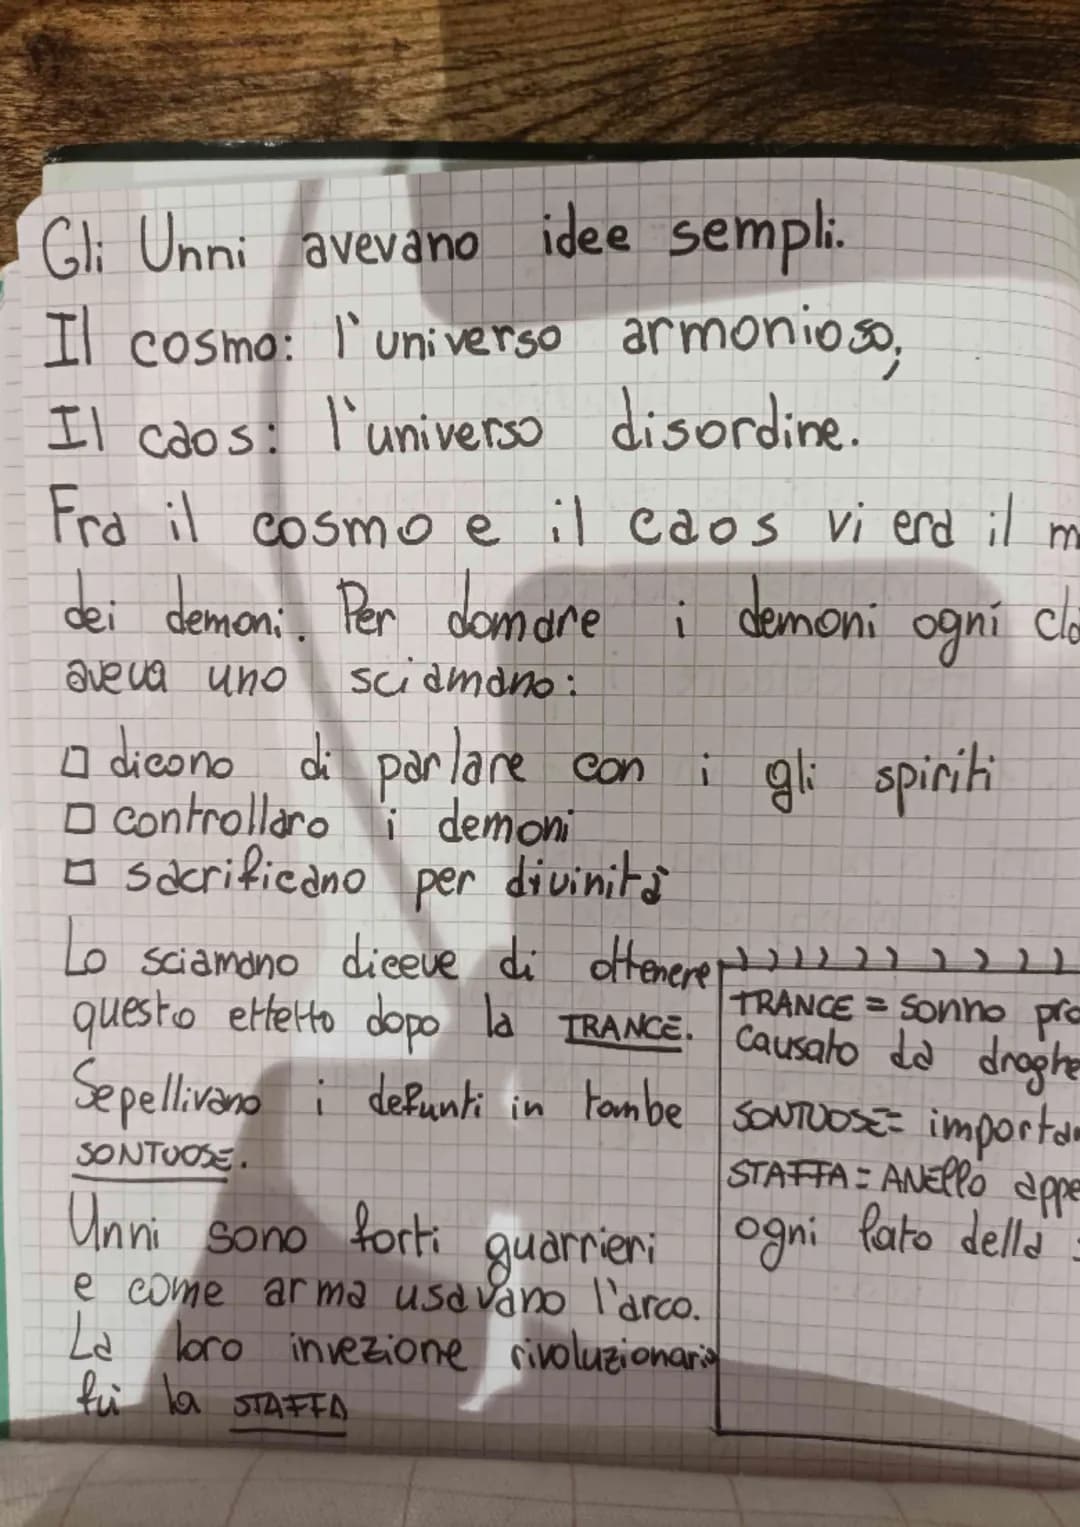 Gli Unni avevano idee sempli.
Il cosmo: l'universo armonioso,
Il caos: l'universo disordine.
Fra il cosmo e il caos vi era il m
dei demoni. Per domare i demoni ogni cla
aveva uno sciamano:
dicono di parlare con i gli spiriti
controllaro i demoni
sacrificano per divinità
Lo sciamano diceve di ottenere
questo effetto dopo la TRANCE.
Sepellivano i defunti in tombe
SONTUOSE.
Unni sono forti guarrieri
e come arma usavano l'arco.
La loro invezione rivoluzionaria
fu la STAFFA
TRANCE = sonno pro
causato da droghe
SONTUOSE = importan
STAFFA = ANEllO appe
ogni lato della s